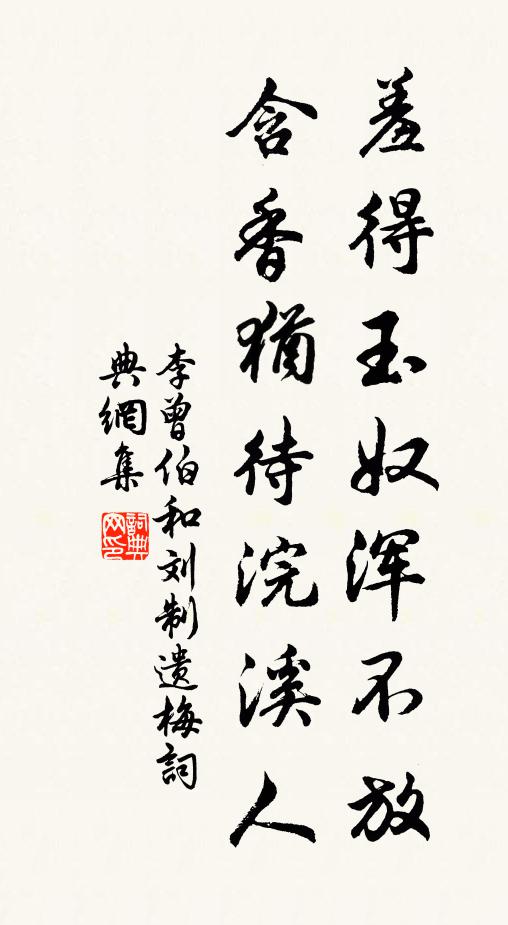 羞得玉奴浑不放
含香犹待浣溪人
李曾伯和刘制遗梅詞
典網集
詞典网印